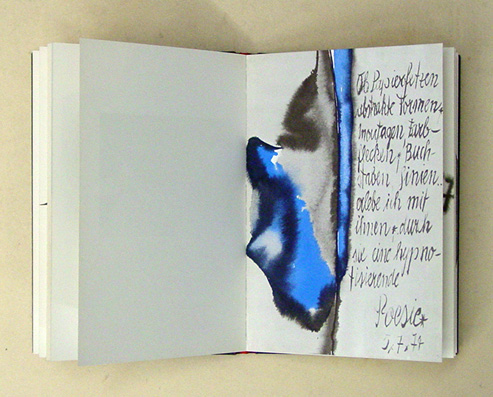 Ob Papierfetzen
abstrakte Formen,
montagen Farb-
flecken, Buch-
staben Linien..
erlebe ich mit
ihnen + durch
sie eine hypno-
tisierende
Poesie*